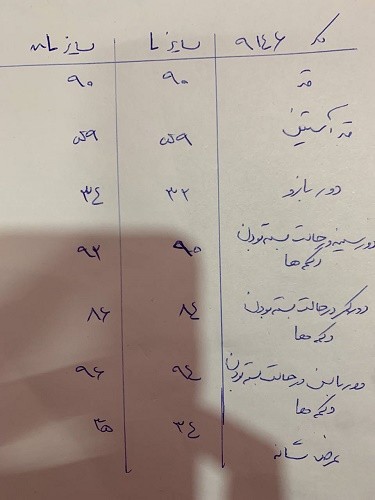 کد ۹۱۴۶ سایز L سایز XL
قد ۹۰ ۹۰
قد آستین ۵۹ ۵۹
دور بازو ۳۲ ۳۴
دور سینه در حالت بسته بودن ۹۰ ۹۲
دکمه ها
دور کمر در حالت بسته بودن ۸۴ ۸۶
دکمه ها
دور باسن در حالت بسته بودن ۹۴ ۹۶
دکمه ها
عرض شانه ۳۴ ۳۵